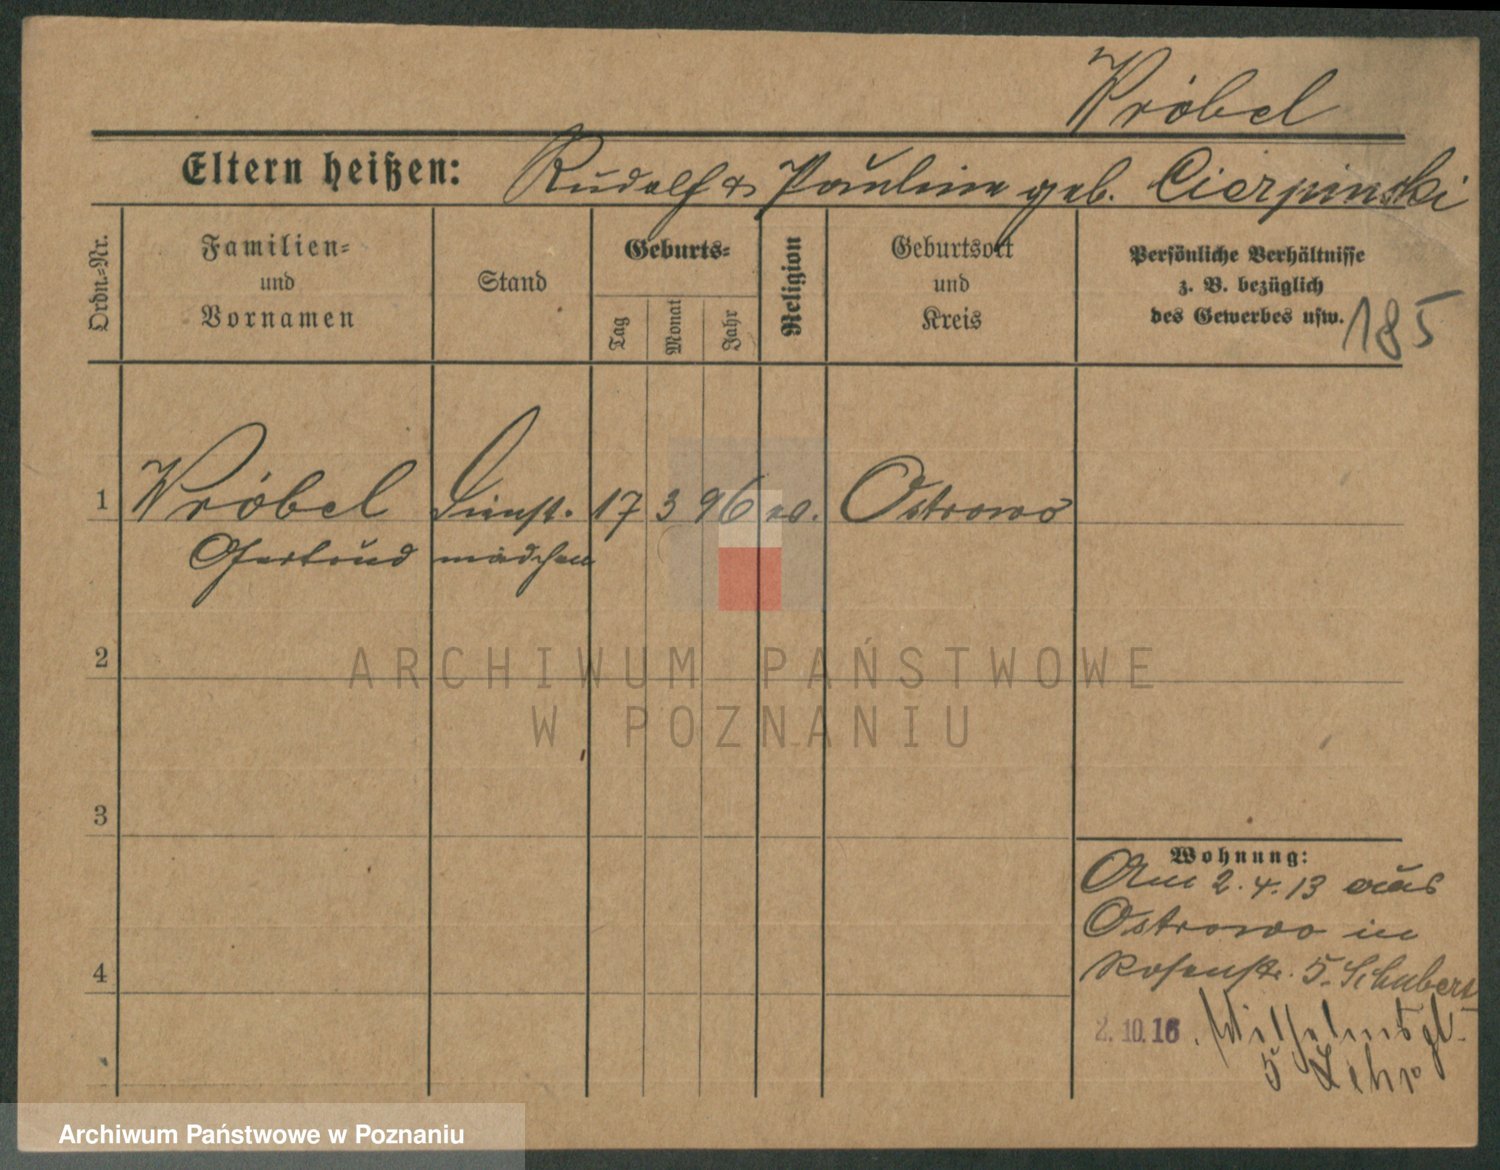 Wróbel
Eltern heißen: Rudolf & Pauline geb. Cierpinski
Ordn.-Nr.
Familien-
und
Vornamen
Stand
Geburts-
Tag
Monat
Jahr
Religion
Geburtsort
und
Kreis
Persönliche Verhältnisse
z. B. bezüglich
des Gewerbes usw.
185
1 Wróbel Dienst- 17 3 96 ev. Ostrowo
Gertrud mädchen
2
3
4
Wohnung:
Am 2.4.13 aus
Ostrowo in
Rosenstr. 5. Schubert
2.10.16. Wilhelmspl.
5 Lehr
ARCHIWUM PAŃSTWOWE
W POZNANIU
Archiwum Państwowe w Poznaniu